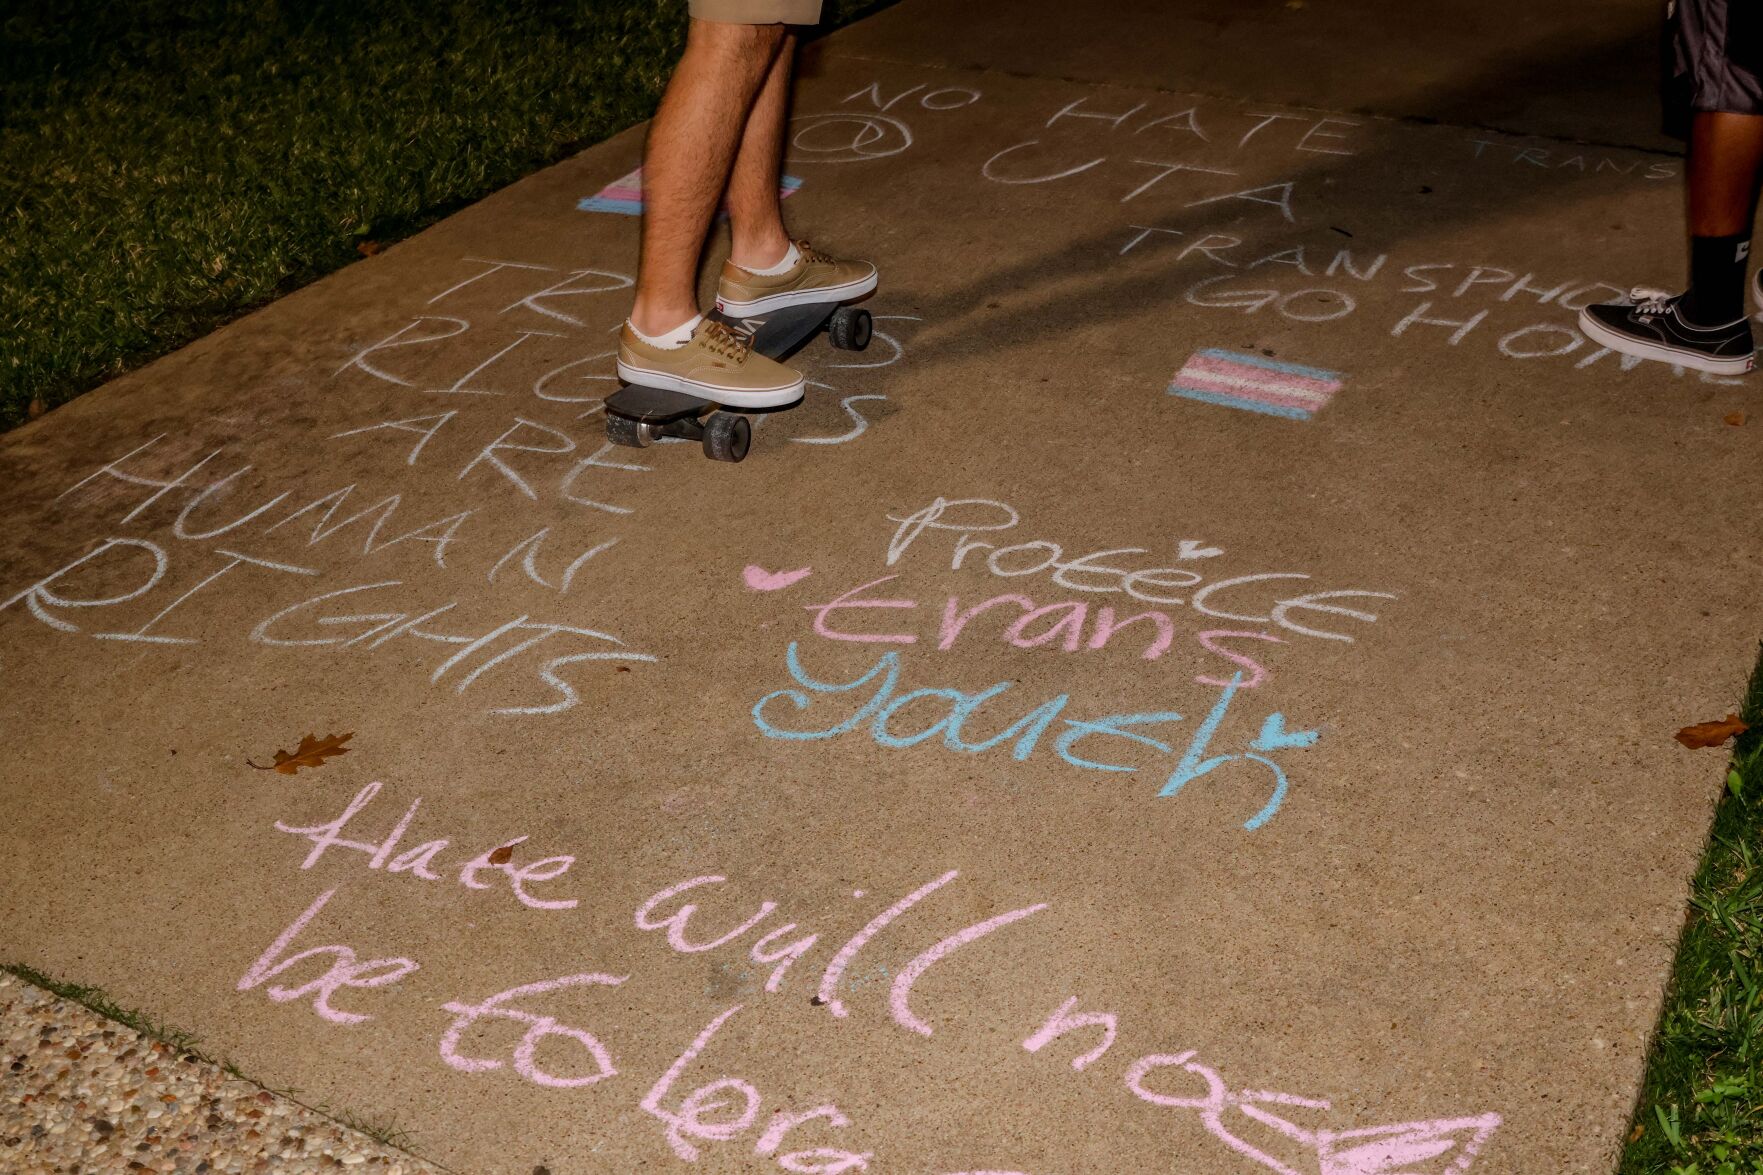 NO HATE
@ UTA
TRANS
TRANSPHO
GO HOME
TR S
RIG TS
ARE
HUMAN
RIGHTS
Protect
trans
youth
Hate will not
be tolera